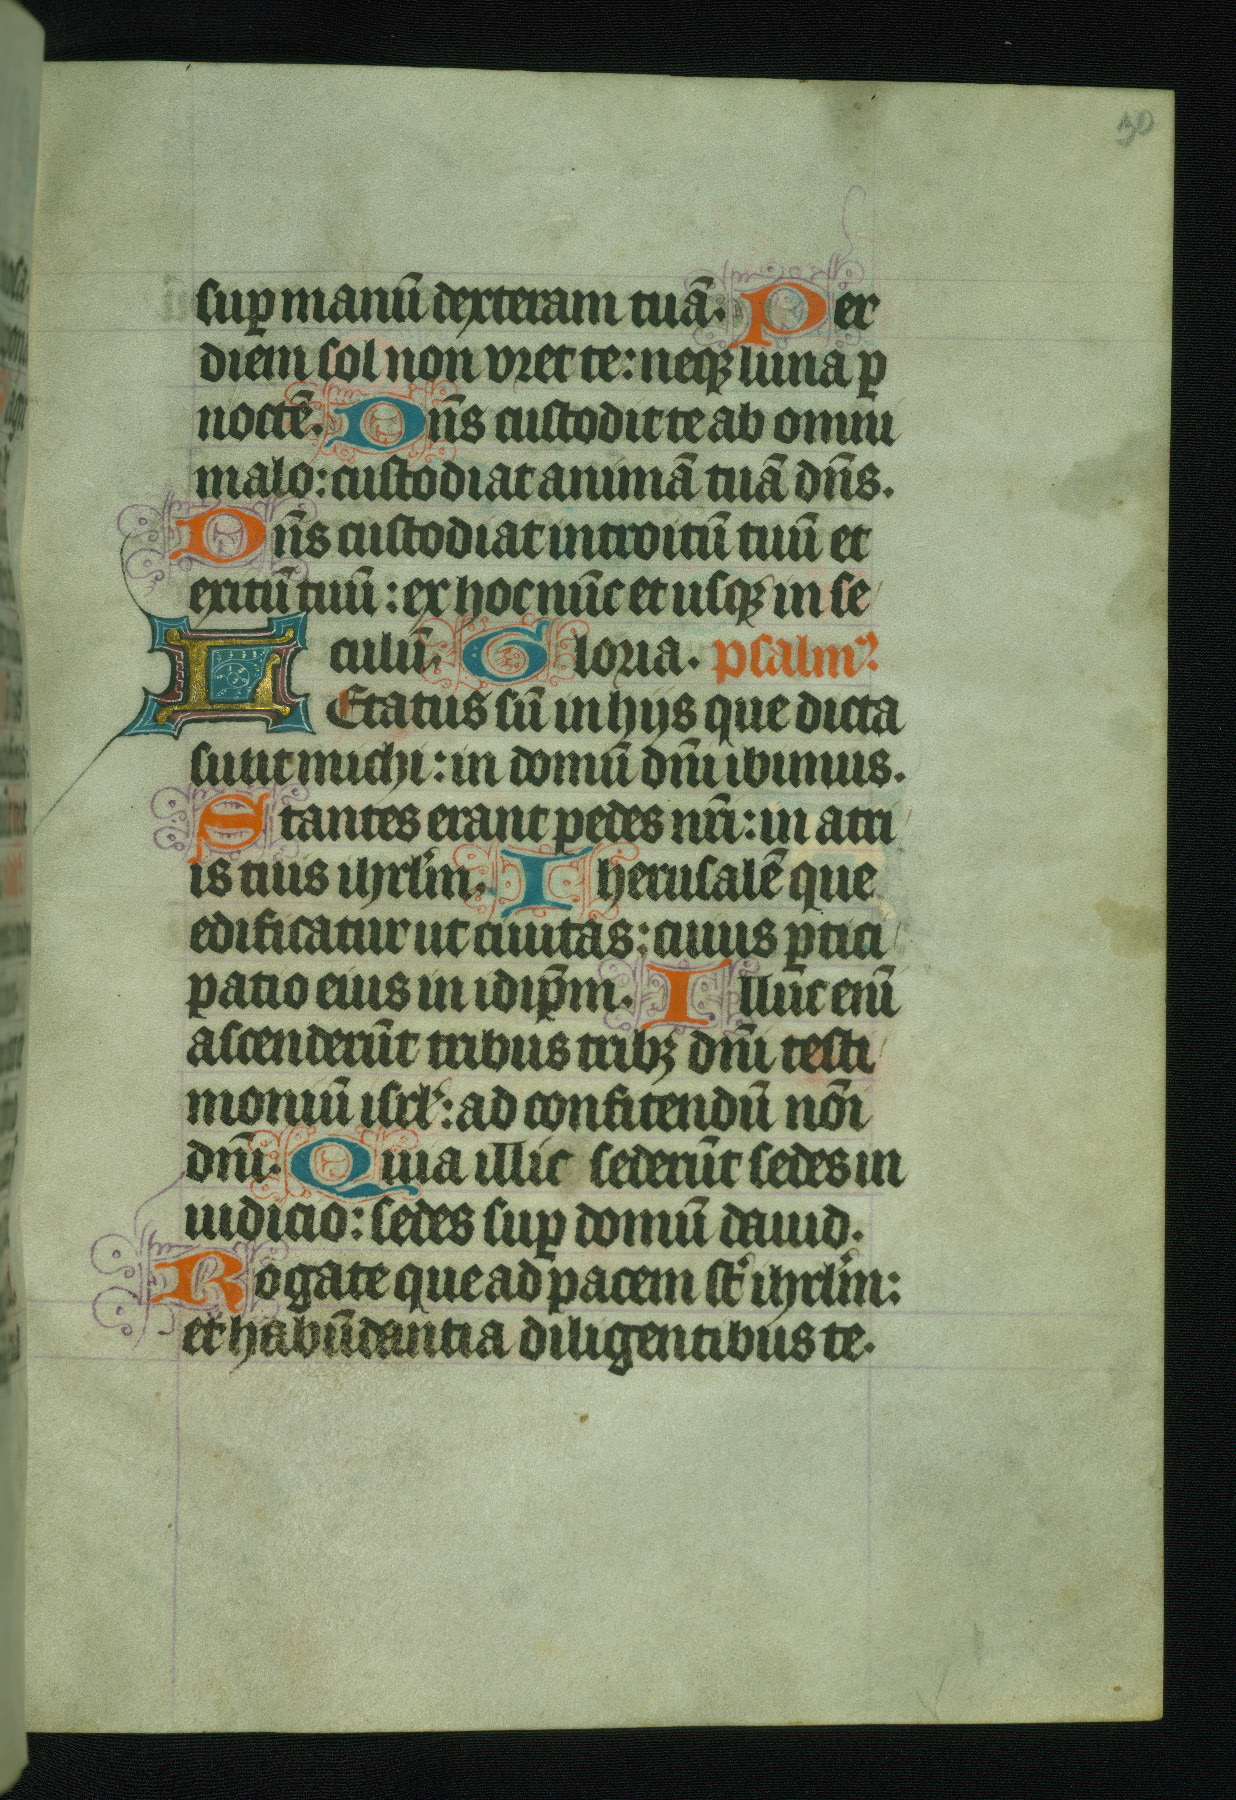 30
sup manū dexteram tuā. Per
diem sol non vret te: neqꝫ luna p
noctē. Dn̄s custodit te ab omni
malo: custodiat animā tuā dn̄s.
Dn̄s custodiat introitū tuū et
exitū tuū: ex hoc nūc et usqꝫ in se
culū. Gloria. psalmꝰ
LEtatus sū in hijs que dicta
sunt michi: in domū dn̄i ibimus.
Stantes erant pedes nr̄i: in atri
is tuis ihrl̄m. Iherusalē que
edificatur ut ciuitas: cuius ꝑtici
patio eius in idip̄m. Illuc enī
ascenderūt tribus tribꝫ dn̄i testi
moniū isrl̄: ad confitendū nōi
dn̄i. Quia illic sederūt sedes in
iudicio: sedes sup domū dauid.
Rogate que ad pacem st̄ ihrl̄m:
et habūdantia diligentibus te.